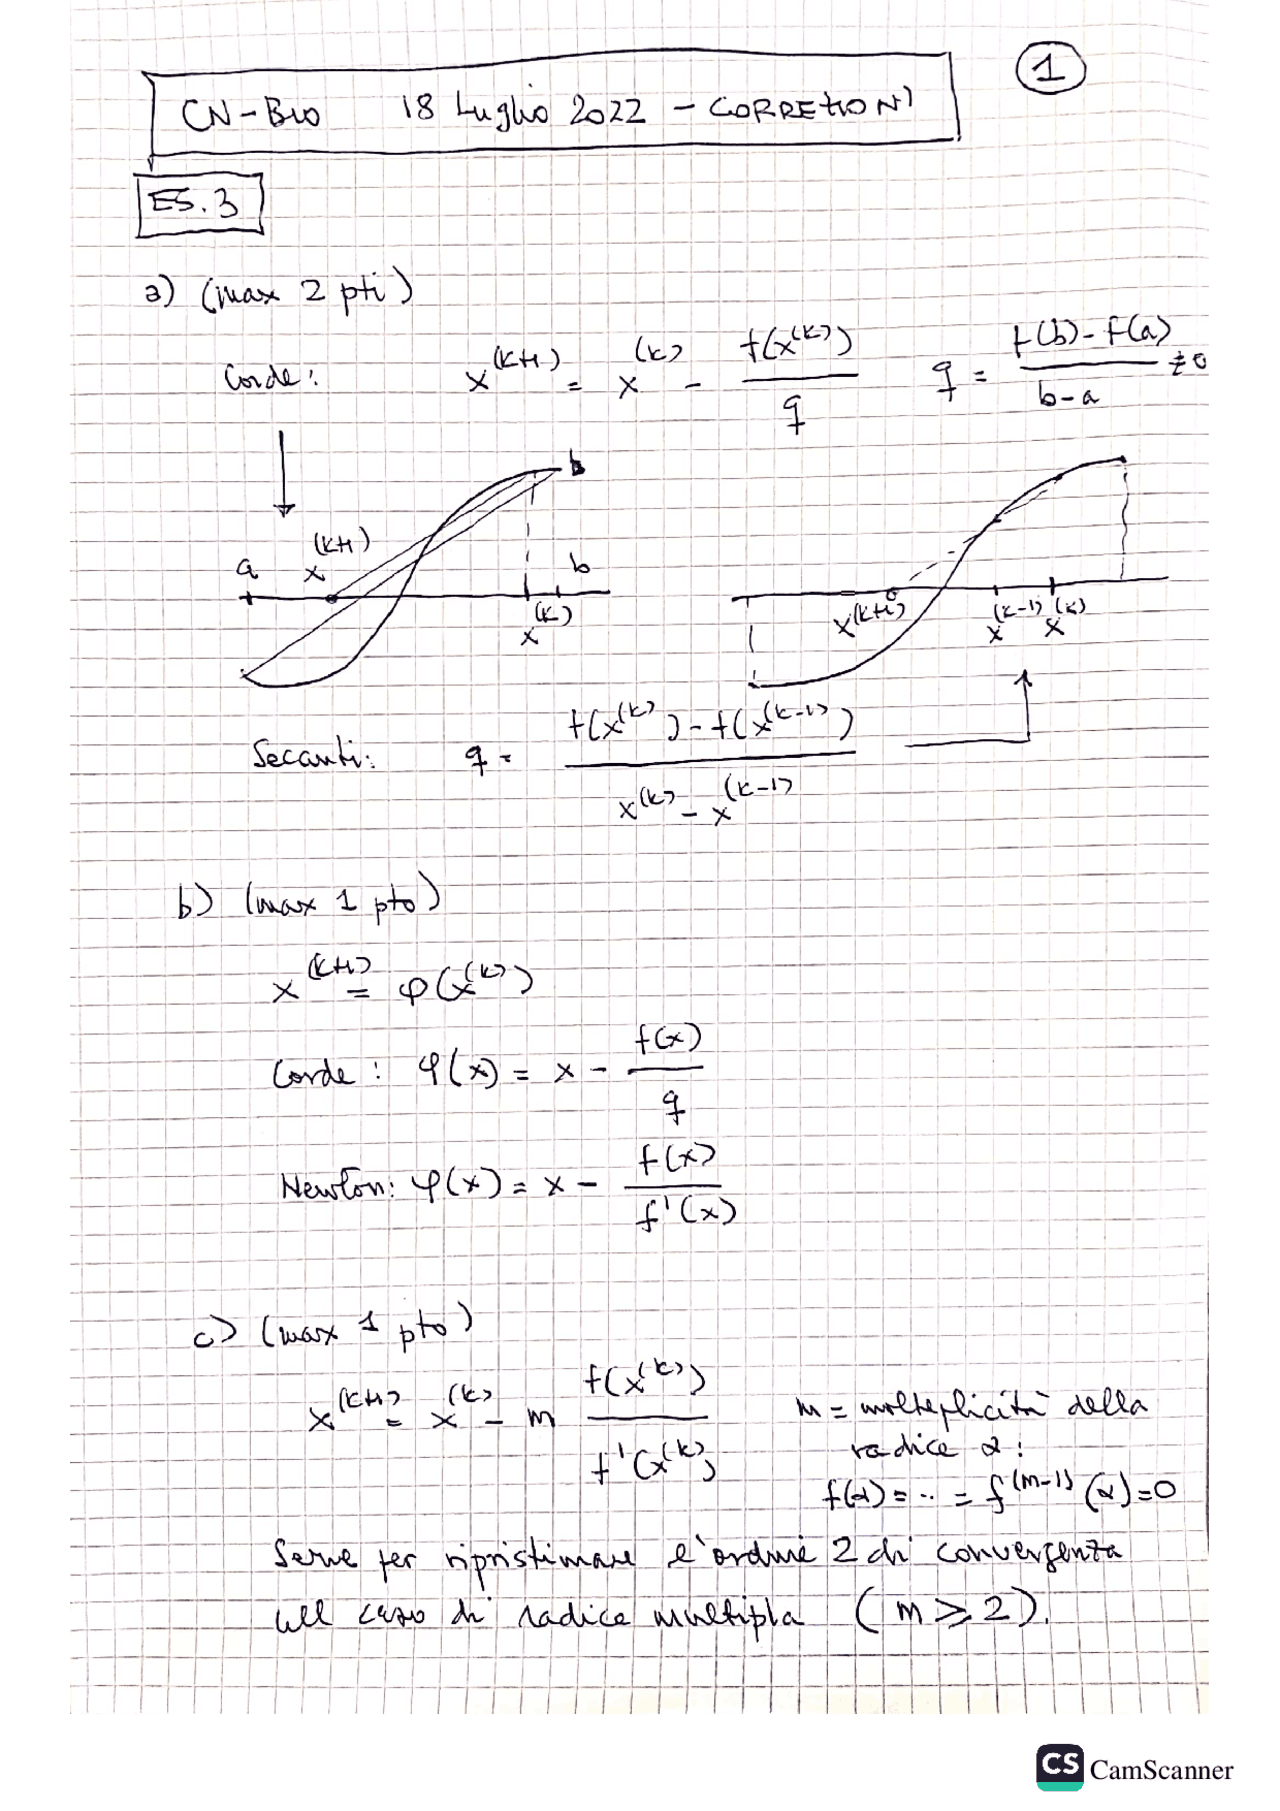 1
CN-BIO 18 Luglio 2022 - CORREZIONI
ES. 3
a) (max 2 pti)
Corde: x^(k+1) = x^(k) - f(x^(k)) / q    q = (f(b) - f(a)) / (b - a) ≠ 0
b
a x^(k+1) b
x^(k)
x^(k+1) x^(k-1) x^(k)
Secanti: q = (f(x^(k)) - f(x^(k-1))) / (x^(k) - x^(k-1))
b) (max 1 pto)
x^(k+1) = φ(x^(k))
Corde: φ(x) = x - f(x) / q
Newton: φ(x) = x - f(x) / f'(x)
c) (max 1 pto)
x^(k+1) = x^(k) - m f(x^(k)) / f'(x^(k))
m = molteplicità della
radice α:
f(α) = .. = f^(m-1) (α) = 0
Serve per ripristinare l'ordine 2 di convergenza
nel caso di radice multipla (m ≥ 2).
CS CamScanner